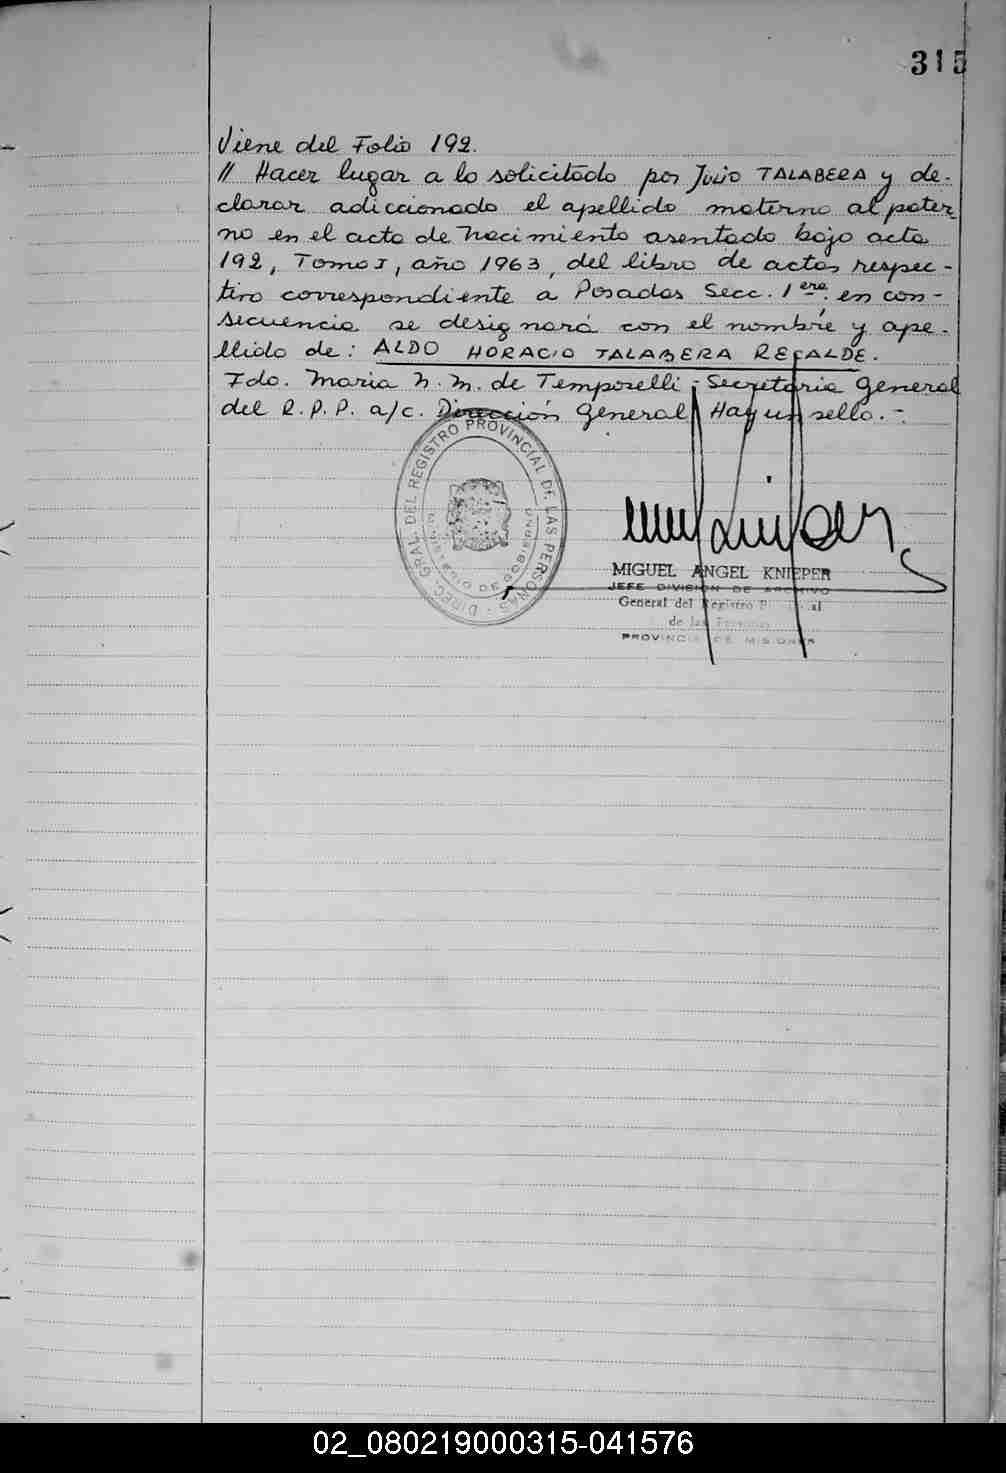 315
Viene del Folio 192.
// Hacer lugar a lo solicitado por Julio TALABERA y de-
clarar adiccionado el apellido materno al pater-
no en el acta de nacimiento asentado bajo acta
192, Tomo I, año 1963, del libro de actas respec-
tivo correspondiente a Posadas Secc. 1era. en con-
secuencia se designará con el nombre y ape-
llido de: ALDO HORACIO TALABERA RECALDE.
Fdo. Maria N. M. de Temporelli - Secretaria General
del R.P.P. a/c. Dirección General Hay un sello.-
DIREC. GRAL. DEL REGISTRO PROVINCIAL DE LAS PERSONAS
MINISTERIO DE GOBIERNO
MIGUEL ANGEL KNIEPER
JEFE DIVISION DE ARCHIVO
General del Registro Provincial
de las Personas
PROVINCIA DE MISIONES
02_080219000315-041576